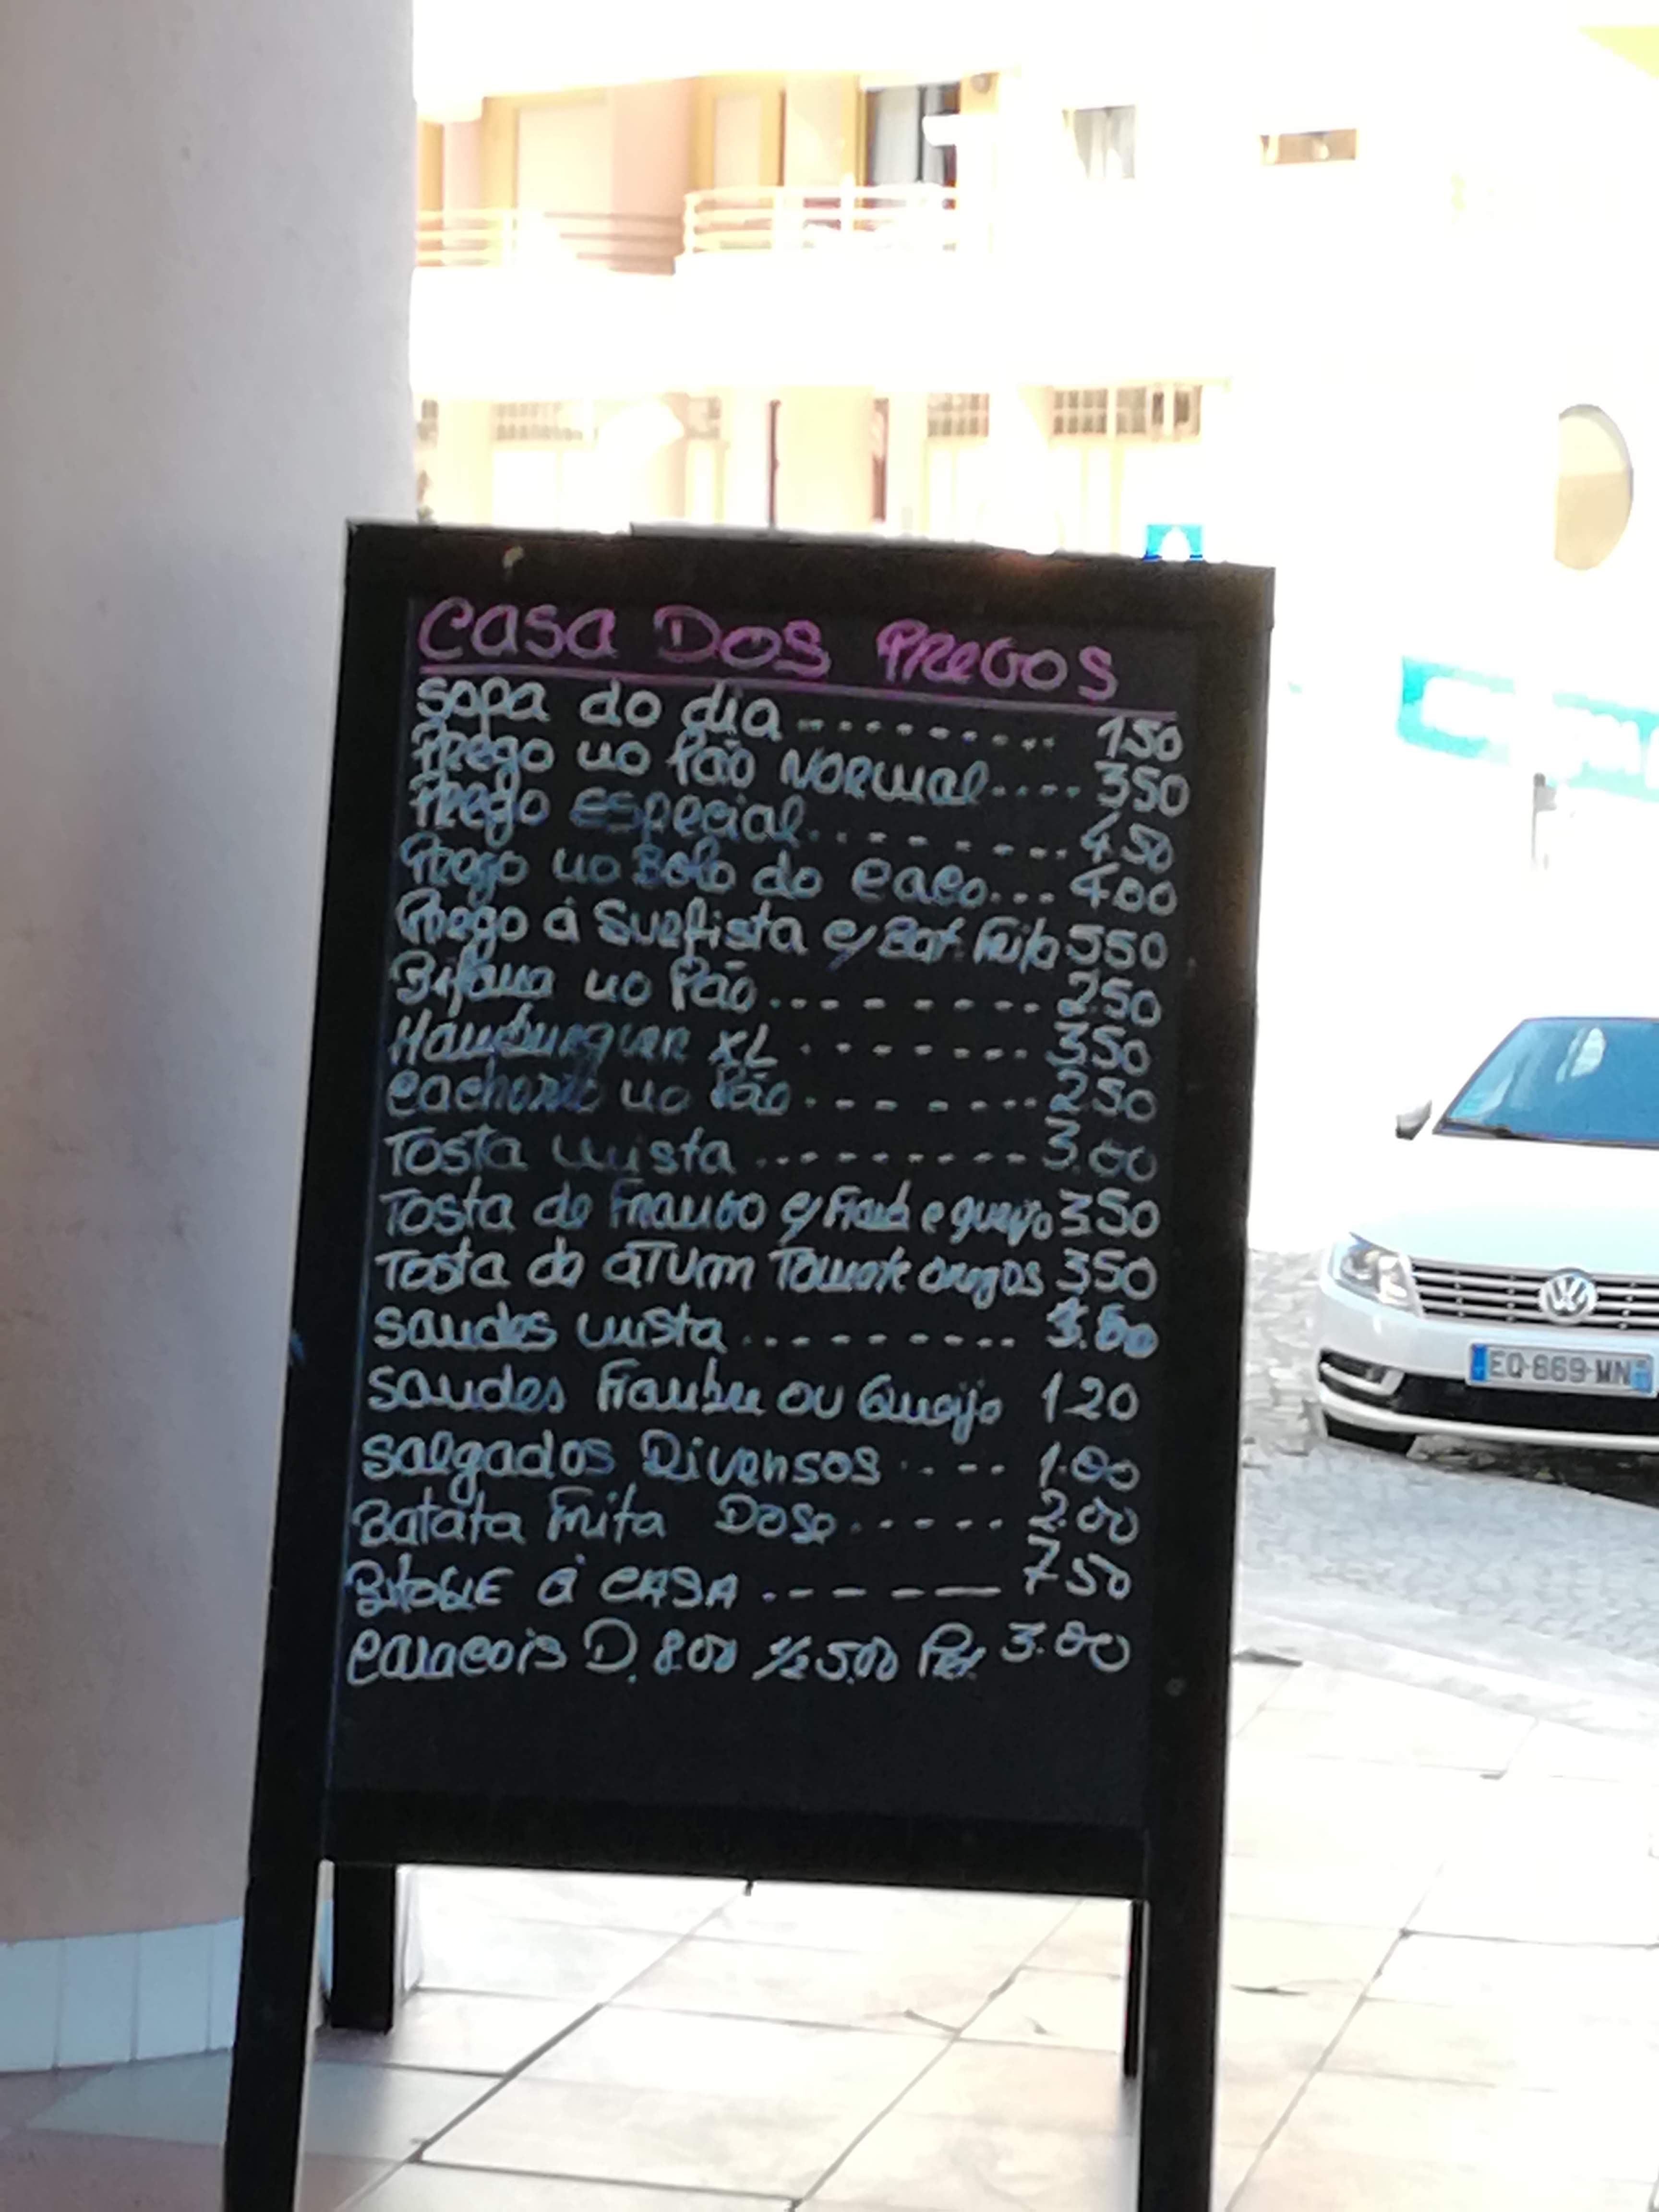 CASA DOS PREGOS
Sopa do dia .......... 150
Prego no Pão NORMAL.... 350
Prego Especial......... 4.50
Prego no Bolo do Caco... 400
Prego á Surfista c/ Bat. Frita 550
Bifana no Pão......... 2.50
Hamburguer XL ........ 350
Cachorro no Pão........ 250
Tosta mista .......... 3.00
Tosta de Frango c/ Fiamb e queijo 350
Tosta de ATUM Tomate oregos 350
Sandes mista..........
Sandes Fiambre ou Queijo 1.20
Salgados Diversos .... 1.00
Batata Frita Dose...... 2.00
BitoQUE á CASA ...... 7.50
Caracois D. 8.00 1/2 5.00 Per 3.00
EQ-869-MN